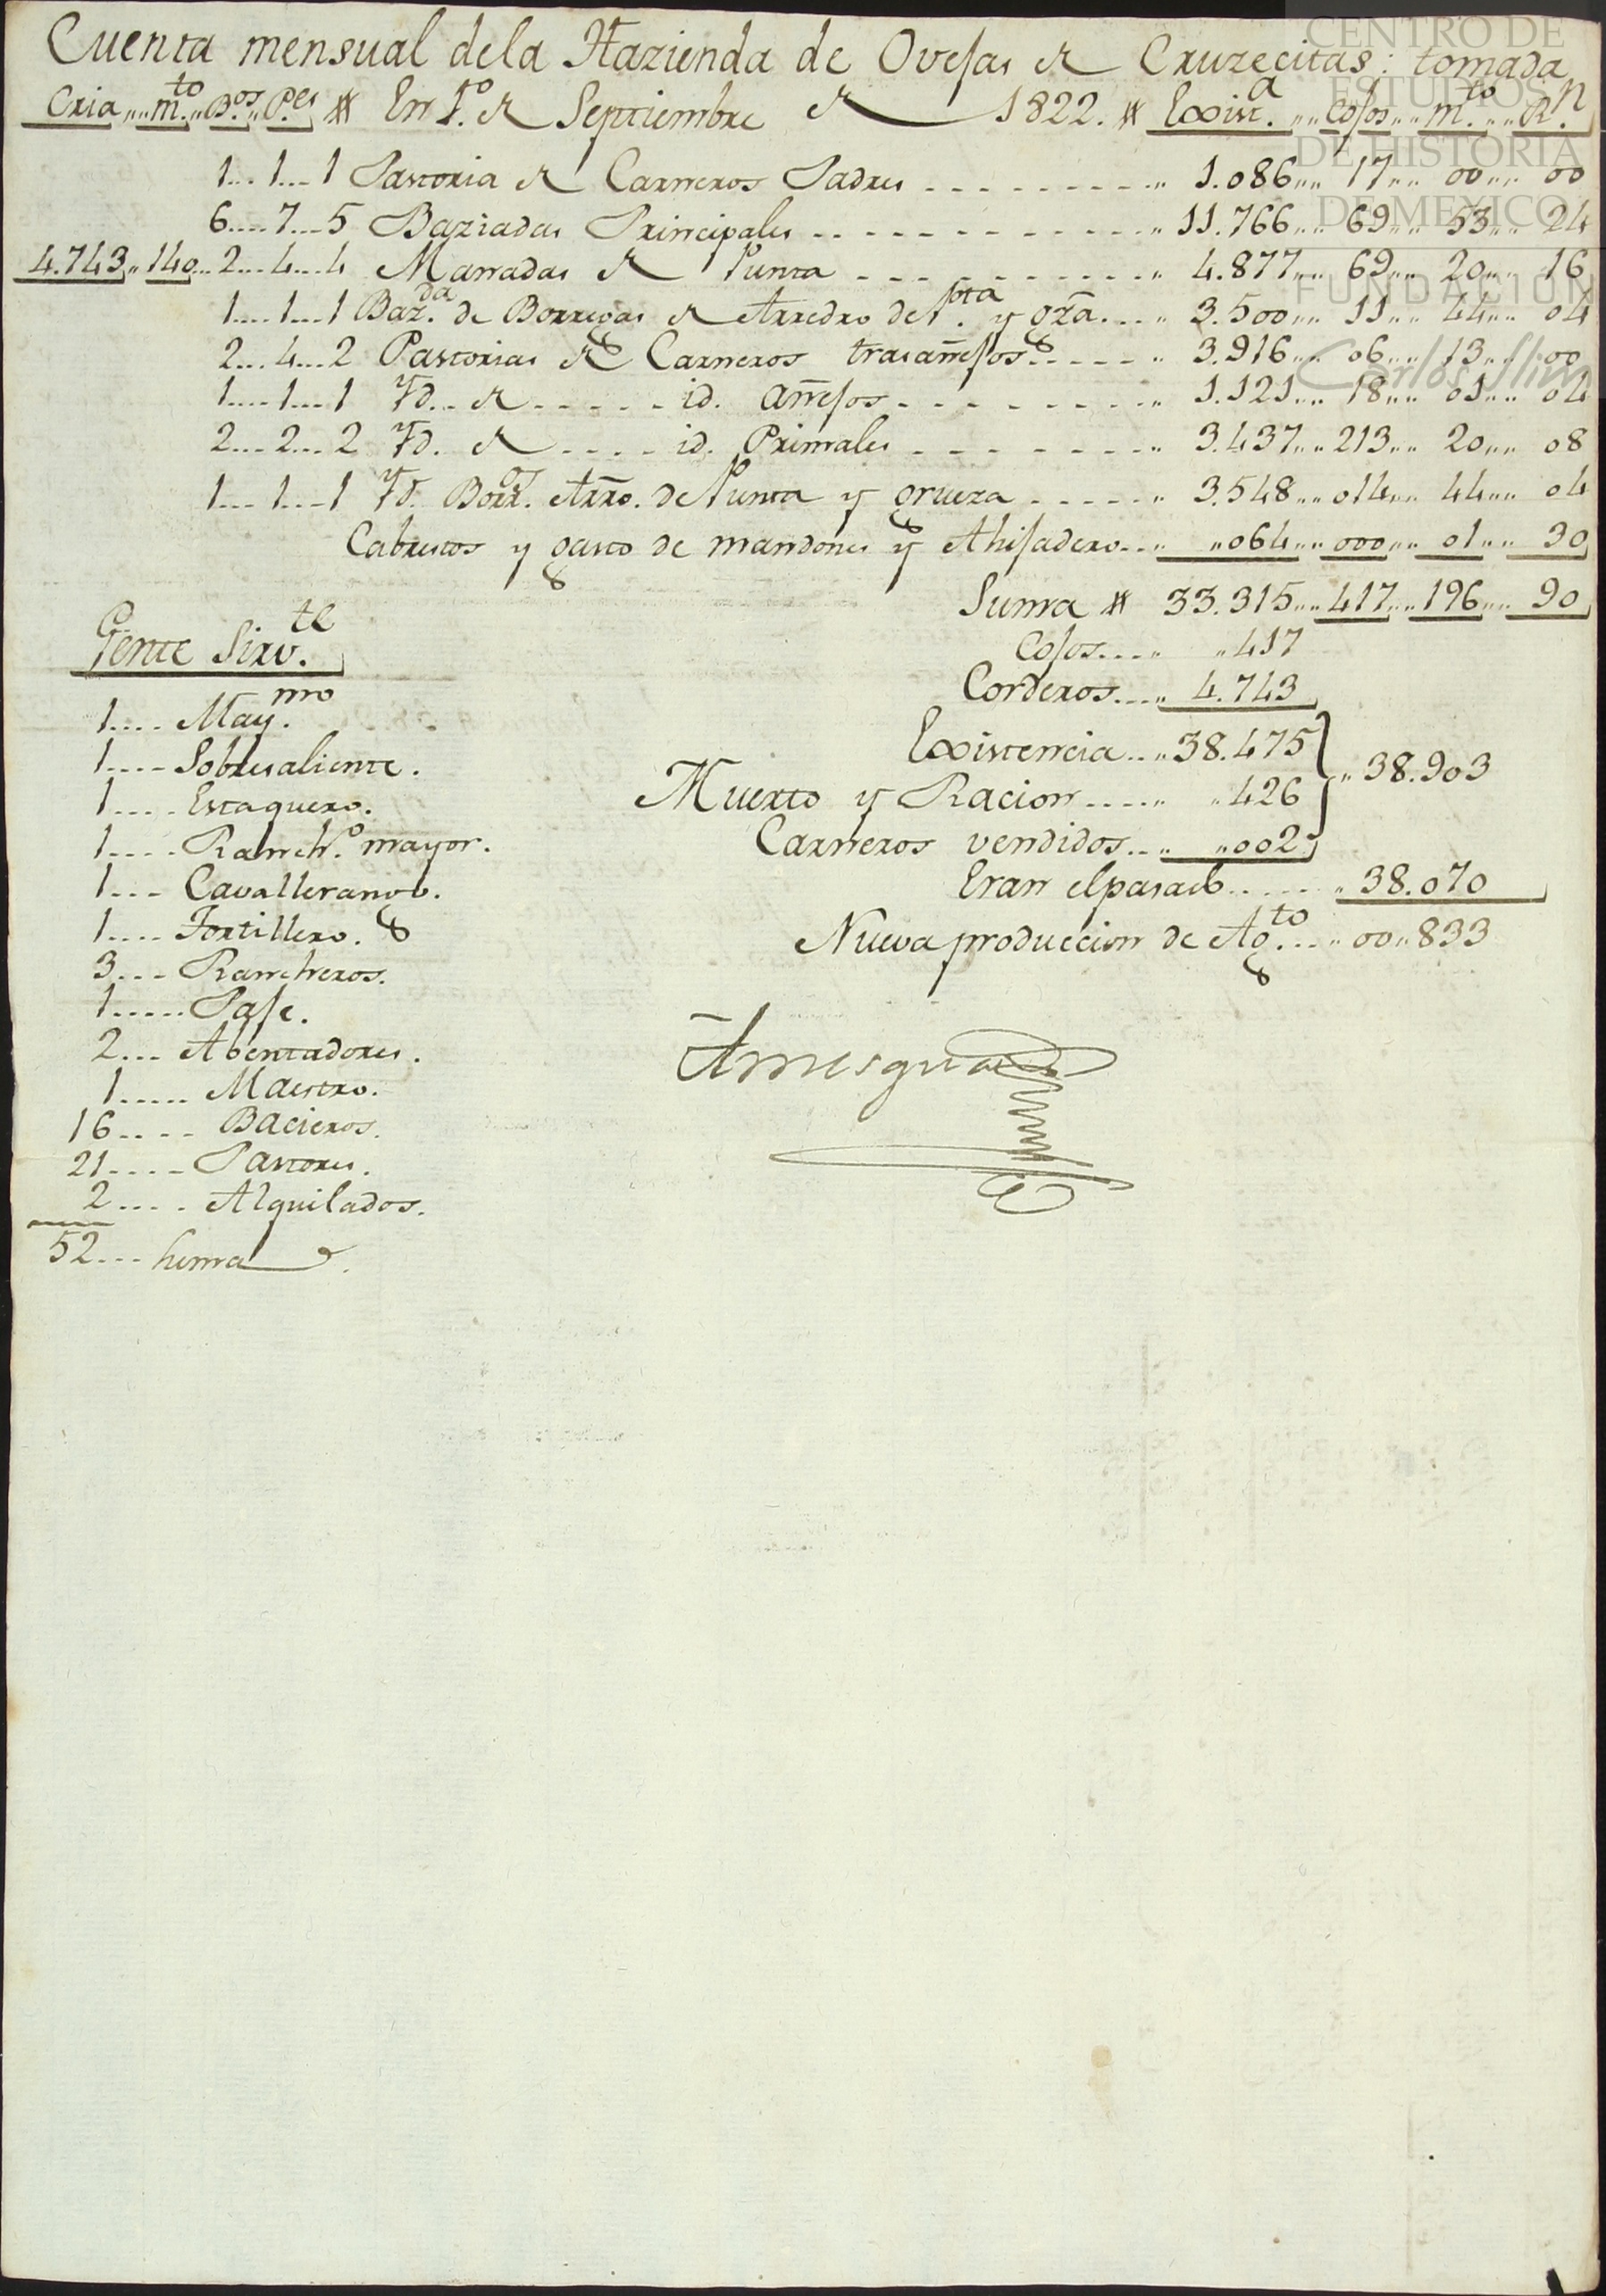 CENTRO DE
ESTUDIOS
DE HISTORIA
DE MEXICO
FUNDACION
Carlos Slim
Cuenta mensual dela Hazienda de Ovejas de Cruzecitas: tomada
Cria,,,,m.to,,B.os,,P.es # En 1.o de Septiembre de 1822. # Exist.a ,,,, cojos,,,, m.to ,,,, R.n
1....1....1 Pastoria de Carneros Padres - - - - - - - - - ,, 1.086,,,, 17,,,, 00,,,, 00
6....7....5 Baziadas Principales - - - - - - - - - - - - ,, 11.766,,,, 69,,,, 53,,,, 24
4.743,,140...2....4....4 Manadas de Punta - - - - - - - - - - - ,, 4.877,,,, 69,,,, 20,,,, 16
1....1....1 Baz.da de Borregas de Arredro de P.ta y gza. - - ,, 3.500,,,, 11,,,, 44,,,, 04
2....4....2 Pastorias de Carneros trasañejos - - - - - ,, 3.916,,,, 06,,,, 13,,,, 00
1....1....1 Yd. - de - - - - - id. añejos - - - - - - - - - ,, 1.121,,,, 18,,,, 01,,,, 04
2....2....2 Yd. de - - - - id. Primales - - - - - - - - ,, 3.437,,,,213,,,, 20,,,, 08
1....1....1 Yd. Borr.os Arro. de Punta y grueza - - - - - ,, 3.548,,,,014,,,, 44,,,, 04
Cabrestos y gasto de mandones y Ahijadero - - ,, ,,064,,,,000,,,, 01,,,, 30
Suma # 33.315,,,,417,,,,196,,,, 90
Cojos....,, ,,417
Corderos....,, 4.743
Existencia....,,38.475
Muerto y Racion.....,, ,,426 ,,38.903
Carneros vendidos....,, ,,002
Eran el pasado......,, 38.070
Nueva produccion de Ag.to...,, 00,,833
Gente Sirv.te
1.... May.mo
1.... Sobresaliente.
1.... Estaquero.
1.... Ranch.o mayor.
1.... Cavallerango.
1.... Tortillero.
3.... Rancheros.
1..... Paje.
2.... Abentadores.
1..... Maestro.
16.... Bacieros.
21.... Pastores.
2.... Alquilados.
52.... Suma
Amesqua